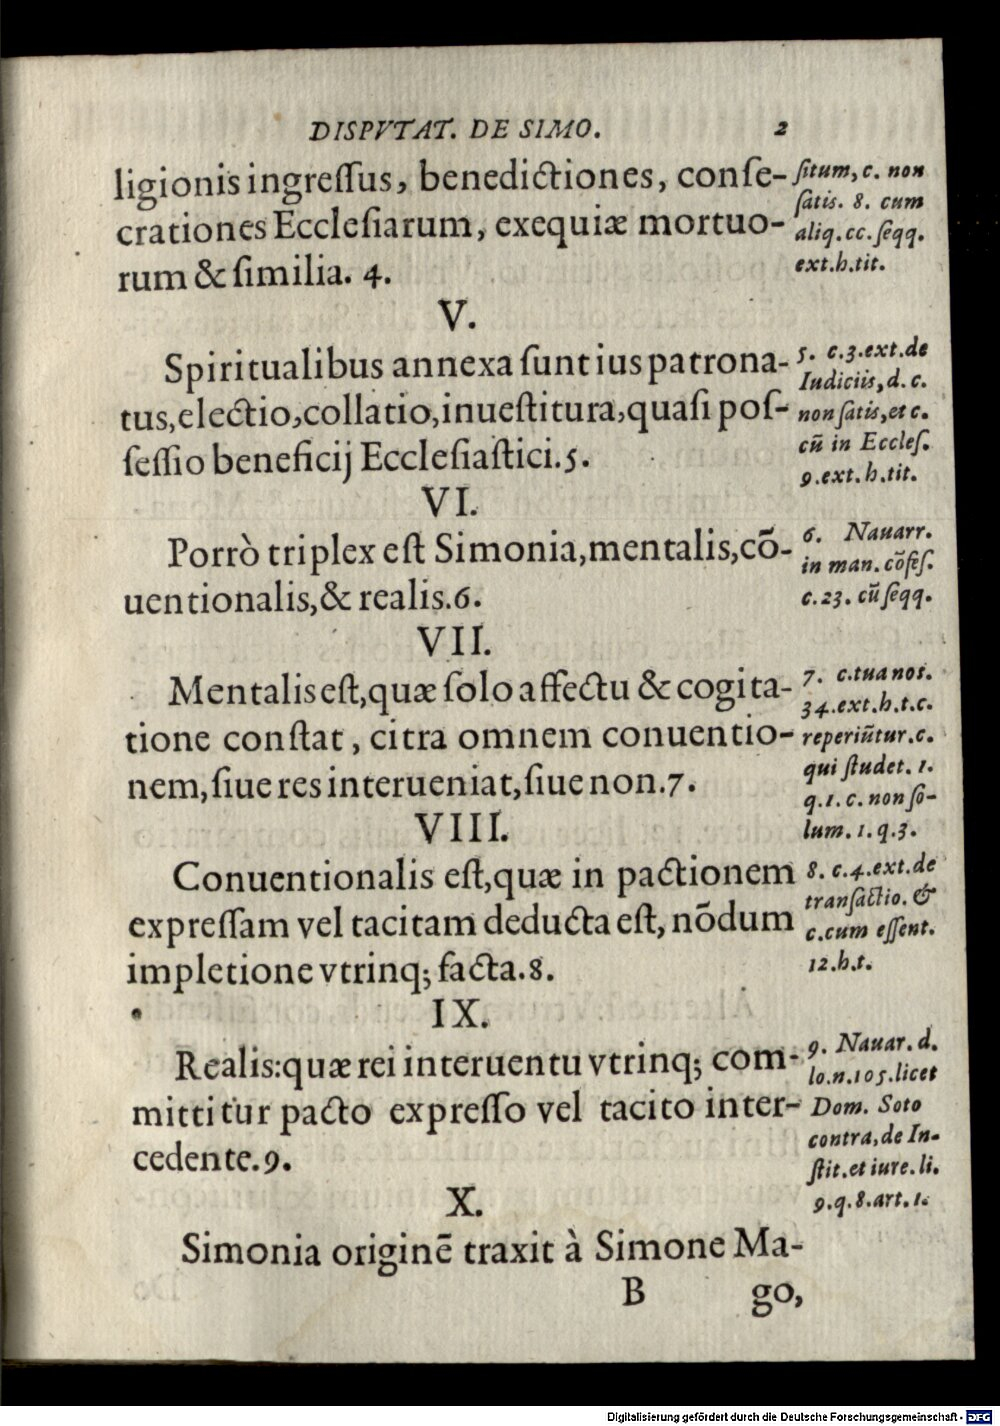 DISPVTAT. DE SIMO. 2
ligionis ingreſſus, benedictiones, conſe-
crationes Eccleſiarum, exequiæ mortuo-
rum & ſimilia. 4.
ſitum, c. non
ſatis. 8. cum
aliq. cc. ſeqq.
ext. h. tit.
V.
Spiritualibus annexa ſunt ius patrona-
tus, electio, collatio, inueſtitura, quaſi poſ-
ſeſſio beneficij Eccleſiaſtici. 5.
5. c. 3. ext. de
Iudiciis, d. c.
non ſatis, et c.
cū in Eccleſ.
9. ext. h. tit.
VI.
Porrò triplex eſt Simonia, mentalis, cō-
uentionalis, & realis. 6.
6. Nauarr.
in man. cōfeſ.
c. 23. cū ſeqq.
VII.
Mentalis eſt, quæ ſolo affectu & cogita-
tione conſtat, citra omnem conuentio-
nem, ſiue res interueniat, ſiue non. 7.
7. c. tua nos.
34. ext. h. t. c.
reperiūtur. c.
qui ſtudet. 1.
q. 1. c. non ſo-
lum. 1. q. 3.
VIII.
Conuentionalis eſt, quæ in pactionem
expreſſam vel tacitam deducta eſt, nōdum
impletione vtrinq; facta. 8.
8. c. 4. ext. de
tranſactio. &
c. cum eſſent.
12. h. t.
IX.
Realis: quæ rei interuentu vtrinq; com-
mittitur pacto expreſſo vel tacito inter-
cedente. 9.
9. Nauar. d.
lo. n. 105. licet
Dom. Soto
contra, de In-
ſtit. et iure. li.
9. q. 8. art. 1.
X.
Simonia originē traxit à Simone Ma-
B go,
Digitalisierung gefördert durch die Deutsche Forschungsgemeinschaft - DFG